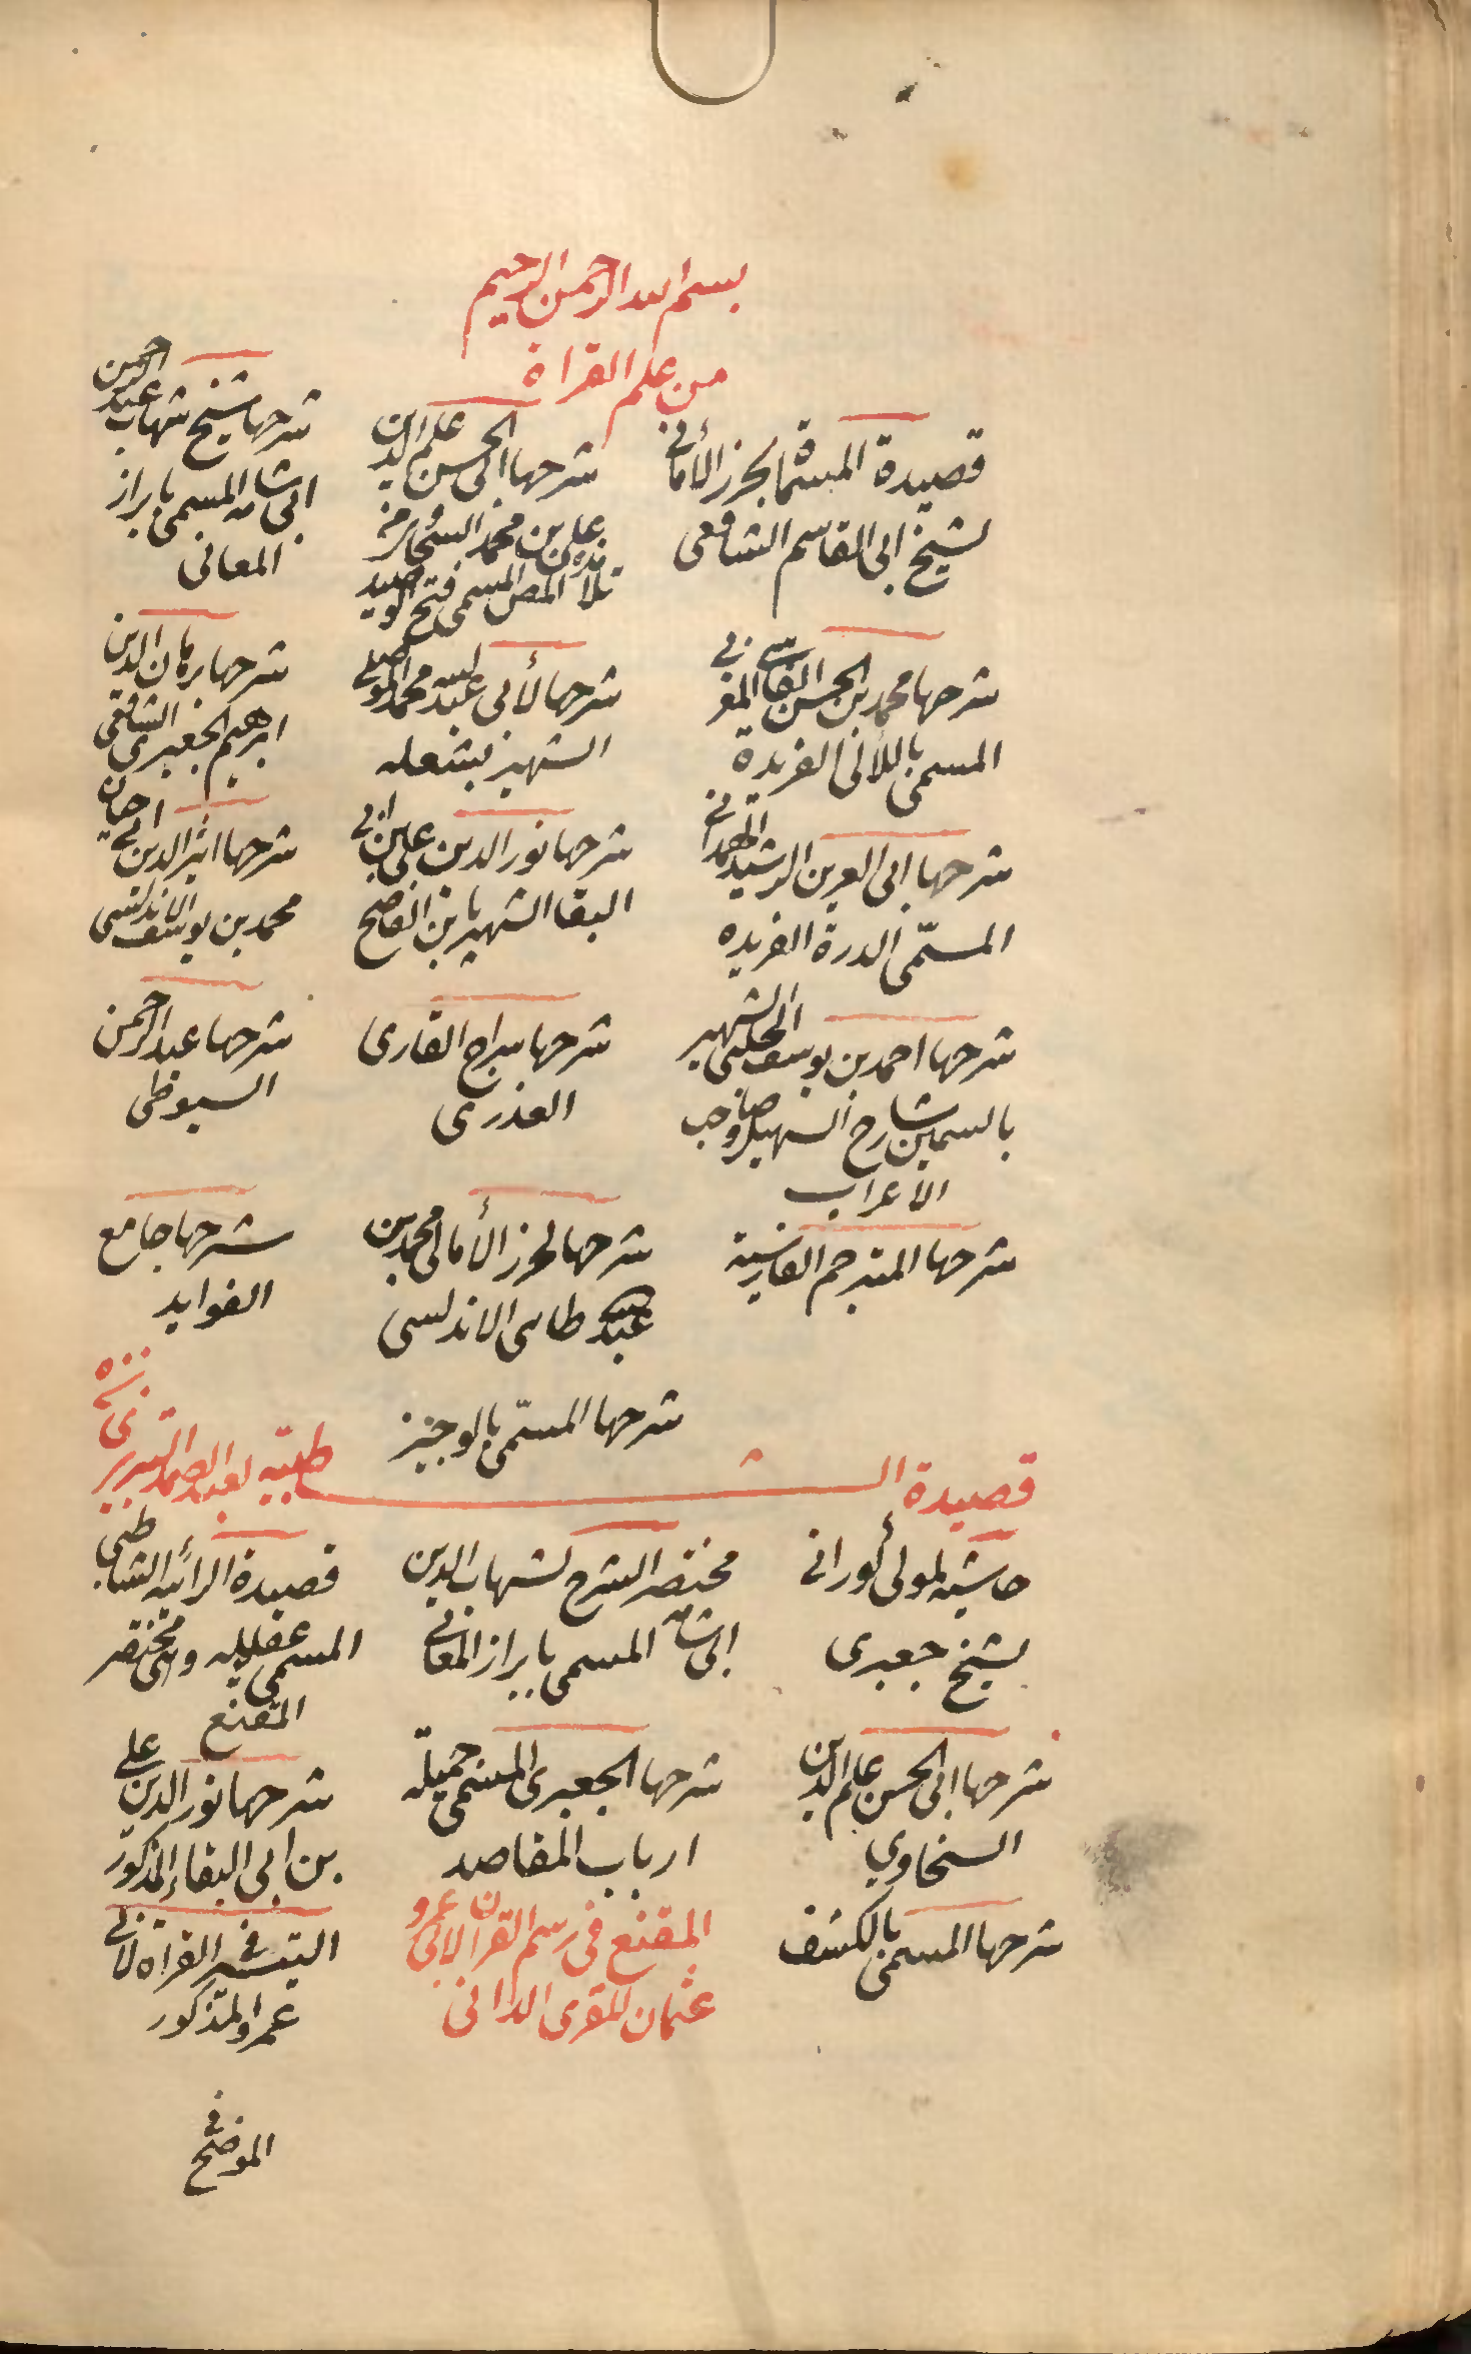 بسم الله الرحمن الرحيم
من علم القراة
قصيدة المسماة بحرز الأماني
لشيخ ابى القاسم الشافعى
شرحها ابى الحسن علم الدين
على بن محمد السخاوى
المسمى فتح الوصيد
شرحها شيخ شهاب عبد الرحمن
ابى شامه المسمى بابراز
المعانى
شرحها محمد بن الحسن الفاسى المغربى
المسمى باللألى الفريدة
شرحها لأبى عبد الله محمد الموصلى
الشهير بشعله
شرحها برهان الدين
ابرهيم الجعبرى الشافعى
شرحها ابى العز بن الرشيد الهمدانى
المسمّى الدرة الفريده
شرحها نور الدين على بن ابى
البقا الشهير بابن القاصح
شرحها اثير الدين ابى حيان
محمد بن يوسف الاندلسى
شرحها احمد بن يوسف الحلبى الشهير
بالسمين شارح التسهيل وصاحب
الاعراب
شرحها سراج القارى
العذرى
شرحها عبد الرحمن
السيوطى
شرحها المترجم الفارسية
شرحها لحرز الأمانى محمد بن
عبد الله طاسى الاندلسى
شرحها جامع
الفوايد
شرحها المسمّى بالوجيز
قصيدة الشاطبيّه لعبد الصمد التبريزى
حاشيه لمولى كورانى
لشيخ جعبرى
مختصر الشرح لشهاب الدين
ابى شامه المسمى بابراز المعانى
قصيدة الرائيه الشاطبى
المسمى عقليله وهى مختصر
المقنع
شرحها ابى الحسن علم الدين
السخاوي
شرحها الجعبرى المسمى جميلة
ارباب المقاصد
شرحها نور الدين على
بن ابى البقاء المذكور
شرحها المسمى بالكشف
المقنع فى رسم القران لابى عمرو
عثمان المقرى الدانى
التيسير فى القراة لابى
عمرو المذكور
الموضح فى